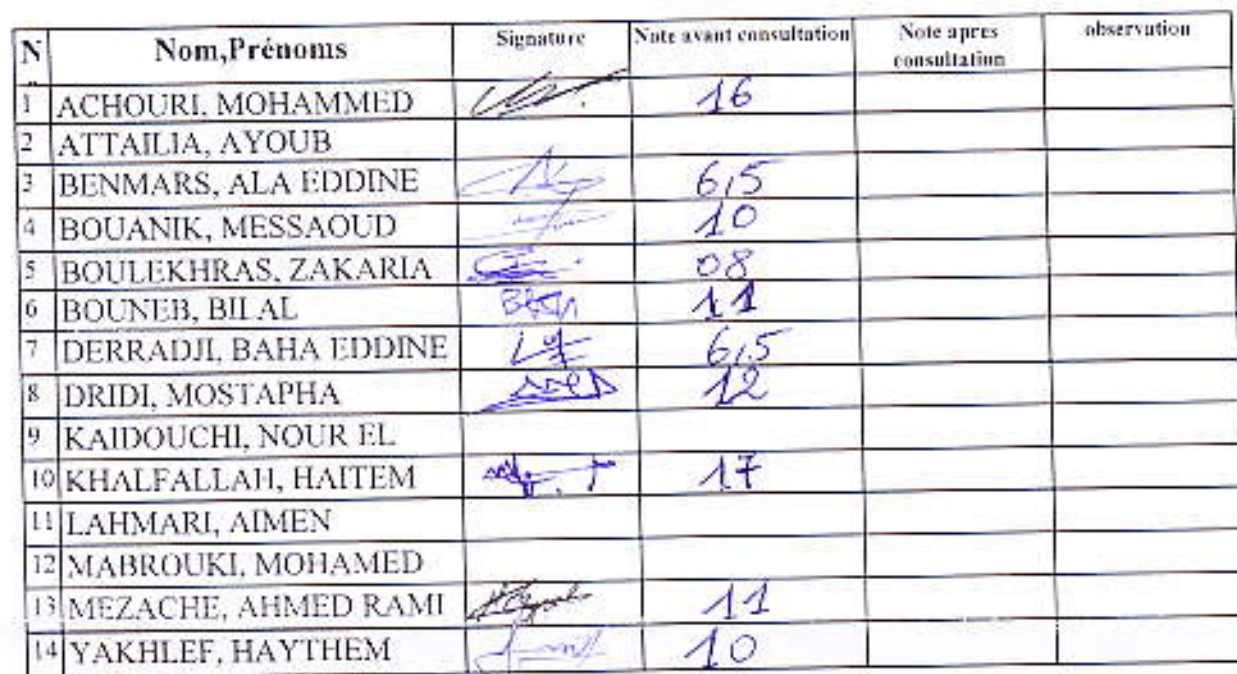 N Nom,Prénoms Signature Note avant consultation Note apres consultation observation
1 ACHOURI, MOHAMMED 16
2 ATTAILIA, AYOUB
3 BENMARS, ALA EDDINE 6,5
4 BOUANIK, MESSAOUD 10
5 BOULEKHRAS, ZAKARIA 08
6 BOUNEB, BILAL 11
7 DERRADJI, BAHA EDDINE 6,5
8 DRIDI, MOSTAPHA 12
9 KAIDOUCHI, NOUR EL
10 KHALFALLAH, HAITEM 17
11 LAHMARI, AIMEN
12 MABROUKI, MOHAMED
13 MEZACHE, AHMED RAMI 11
14 YAKHLEF, HAYTHEM 10